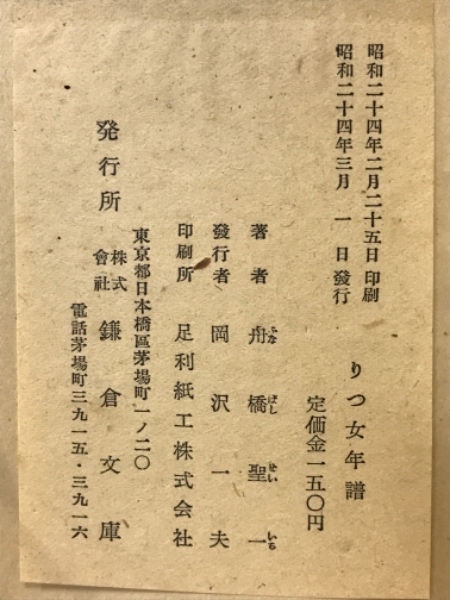 昭和二十四年二月二十五日 印刷
昭和二十四年三月 一 日 發行
りつ女年譜
定価金一五〇円
著者 舟橋聖一
ふな ばし せい いち
發行者 岡沢一夫
印刷所 足利紙工株式会社
東京都日本橋區茅場町一ノ二〇
発行所 株式會社 鎌倉文庫
電話茅場町三九一五・三九一六